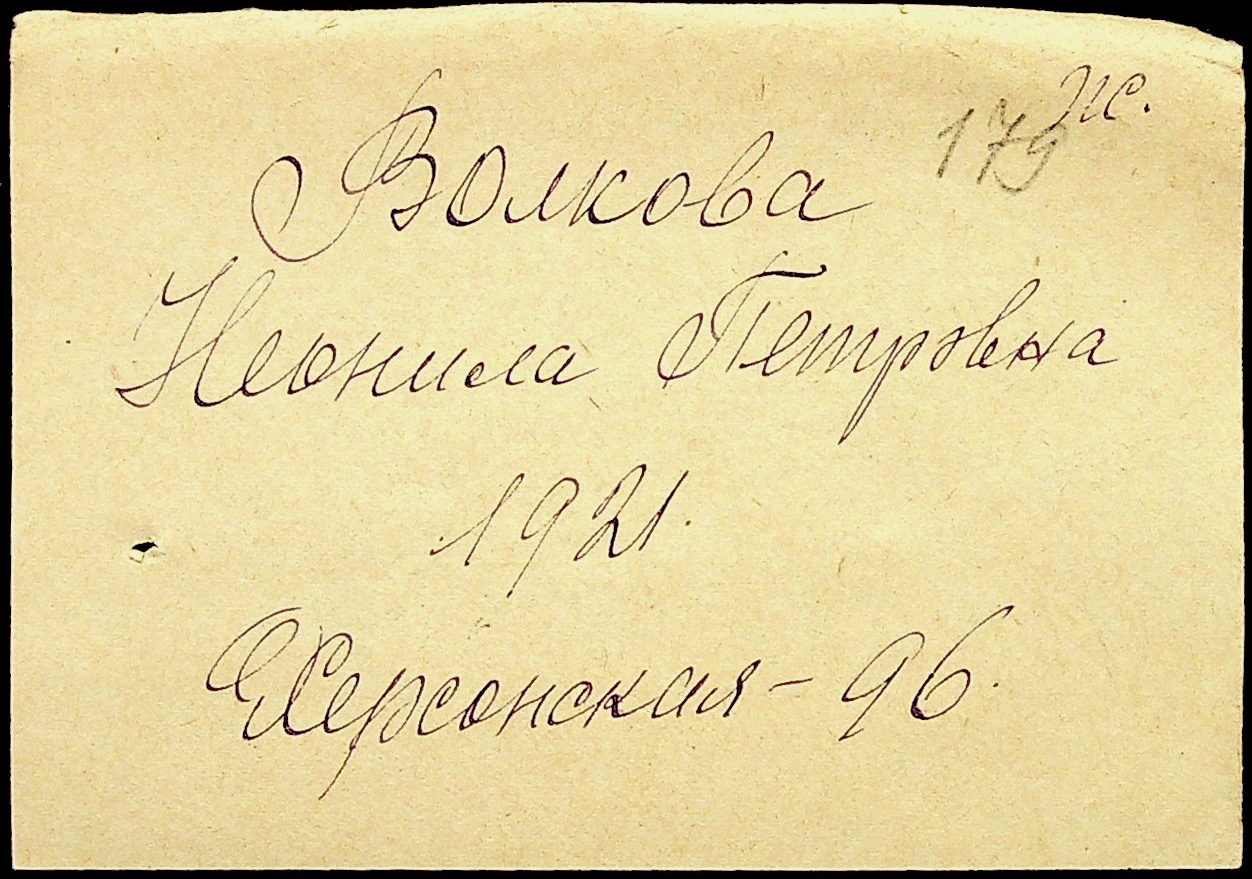 179
Волкова
Неонила Петровна
1921
Херсонская - 96.